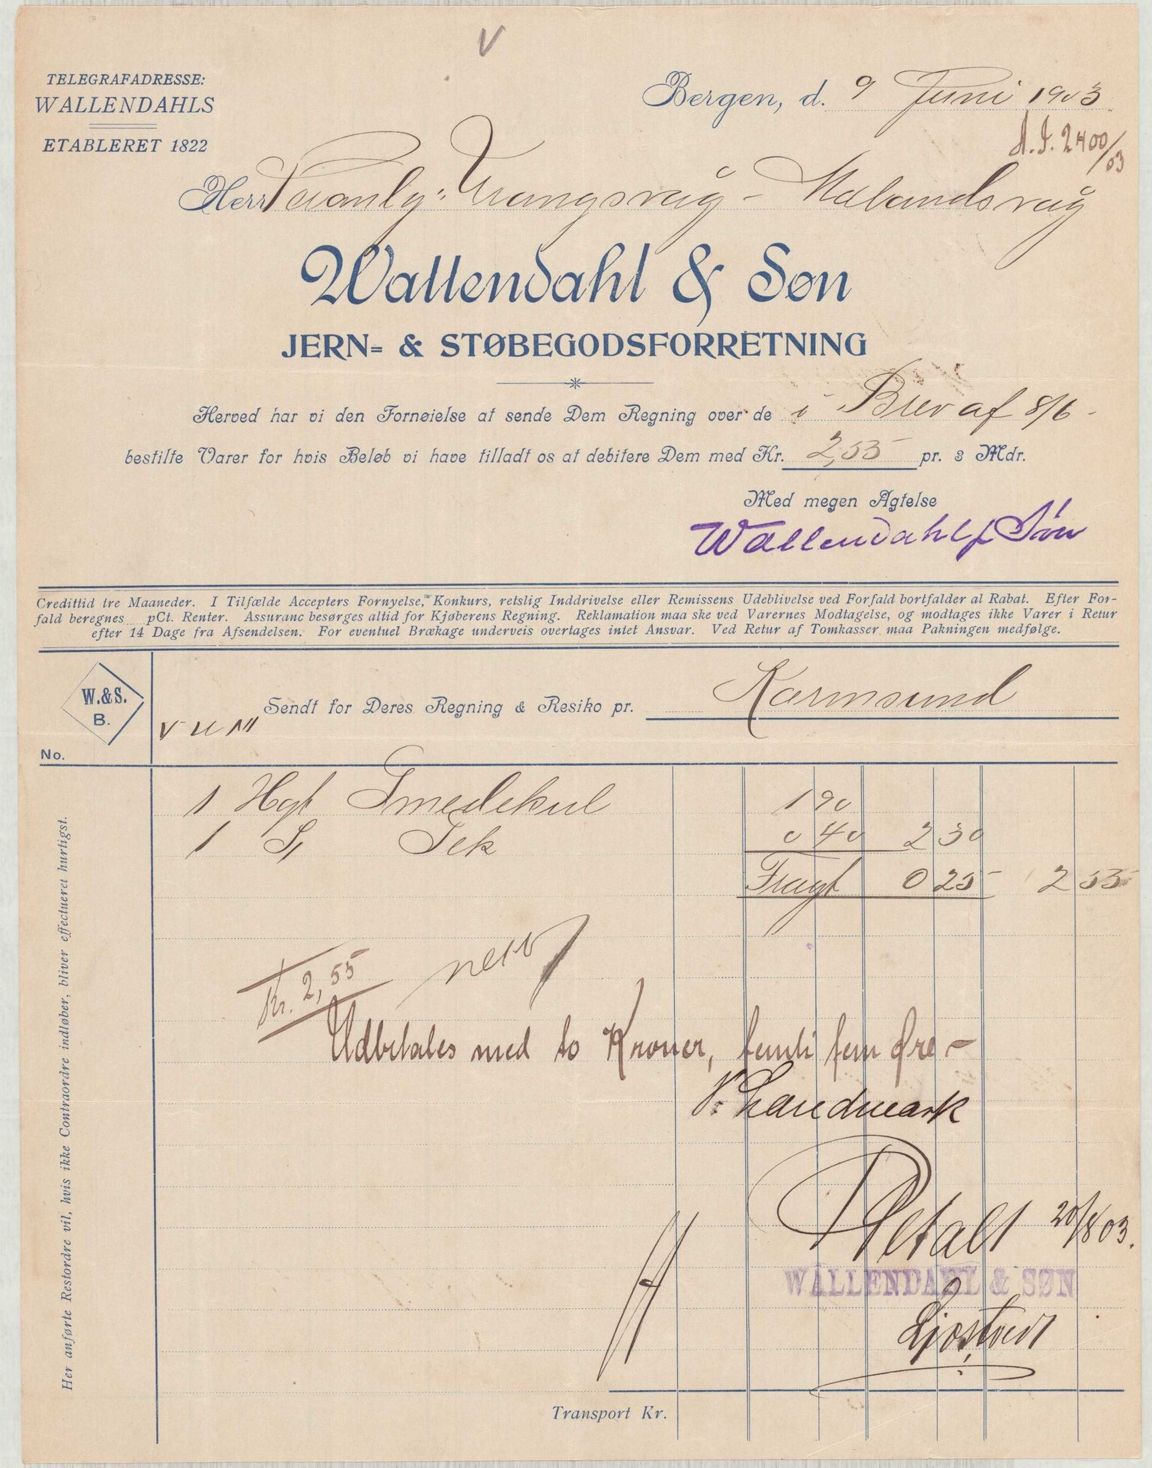 V
TELEGRAFADRESSE:
WALLENDAHLS
ETABLERET 1822
Bergen, d. 9 Juni 1903
A. J. 2400/03
Herr Vrangsvåg - Malandsvåg
Wallendahl & Søn
JERN= & STØBEGODSFORRETNING
Herved har vi den Fornøielse at sende Dem Regning over de i Brev af 8/6 -
bestilte Varer for hvis Beløb vi have tilladt os at debitere Dem med Kr. 2,55 pr. 3 Mdr.
Med megen Agtelse
Wallendahl & Søn
Credittid tre Maaneder. I Tilfælde Accepters Fornyelse, Konkurs, retslig Inddrivelse eller Remissens Udeblivelse ved Forfald bortfalder al Rabat. Efter For-
fald beregnes pCt. Renter. Assuranc besørges altid for Kjøberens Regning. Reklamation maa ske ved Varernes Modtagelse, og modtages ikke Varer i Retur
efter 14 Dage fra Afsendelsen. For eventuel Brækage underveis overtages intet Ansvar. Ved Retur af Tomkasser maa Pakningen medfølge.
W. & S.
B.
V u M
Sendt for Deres Regning & Resiko pr. Karmsund
No.
1 Hgt Smedekul 1 90
1 Sæk 0 40 2 30
Fragt 0 25 2 55
netto
Kr. 2,55
Udbetales med to Kroner, femti fem Øre -
V. Landmark
Betalt 20/8 03.
WALLENDAHL & SØN
Transport Kr.
Her anførte Restordre vil, hvis ikke Contraordre indløber, bliver effectueret hurtigst.